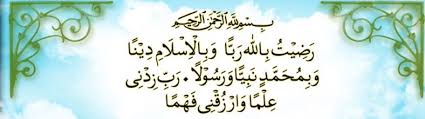 بِسْمِ اللهِ الرَّحْمٰنِ الرَّحِيْمِ
رَضِيْتُ بِاللهِ رَبًّا وَبِالْاِسْلَامِ دِيْنًا
وَبِمُحَمَّدٍ نَبِيًّا وَرَسُوْلًا • رَبِّ زِدْنِي
عِلْمًا وَارْزُقْنِي فَهْمًا